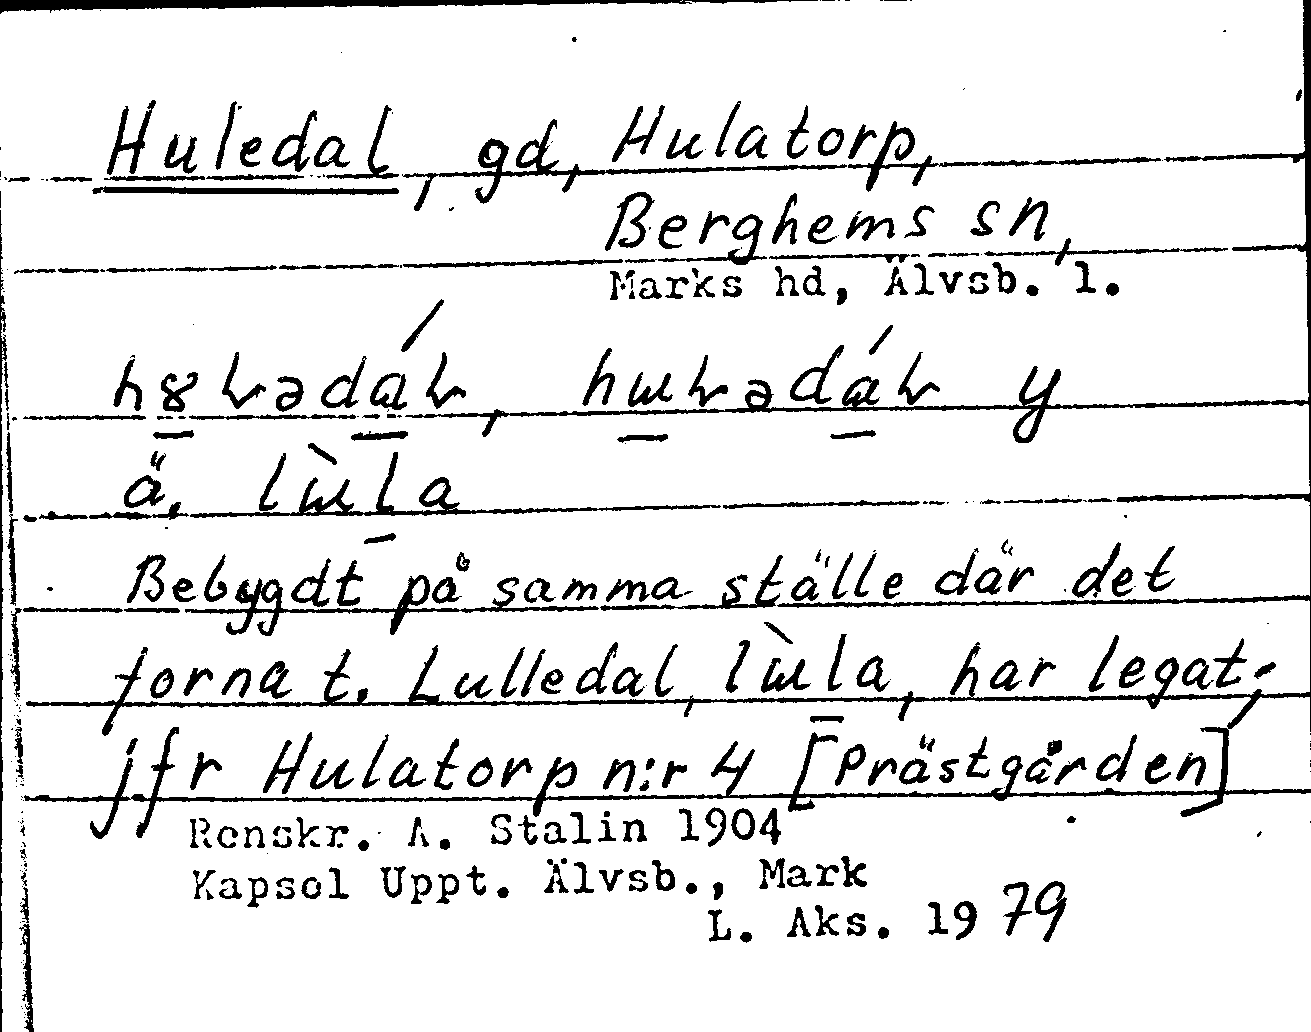 Huledal, gd, Hulatorp,
Berghems sn,
Marks hd, Älvsb. l.
y
ä.
Bebygdt på samma ställe där det
forna t. Lulledal, har legat;
jfr Hulatorp n:r 4 [Prästgården]
Renskr. A. Stalin 1904
Kapsel Uppt. Älvsb., Mark
L. Aks. 1979